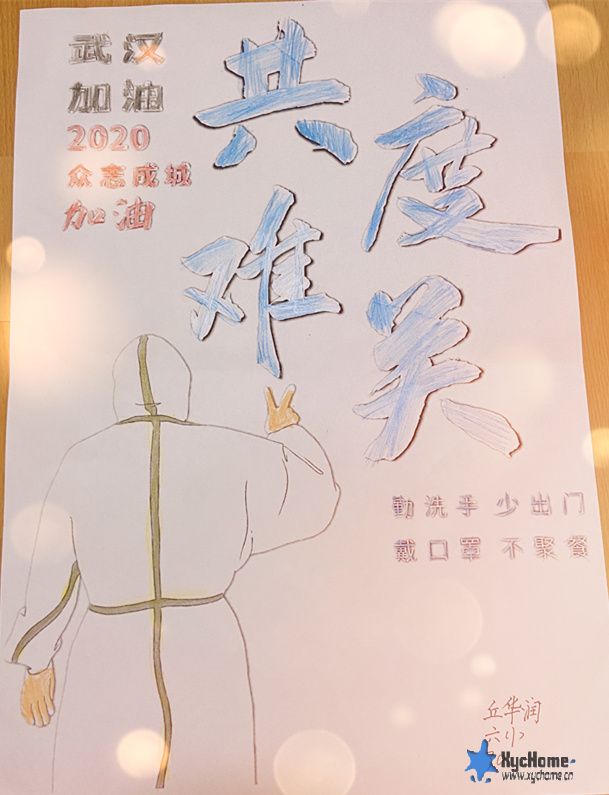 武汉
加油
2020
众志成城
加油
共度
难关
勤洗手 少出门
戴口罩 不聚餐
丘华润
XycHome
www.xychome.cn